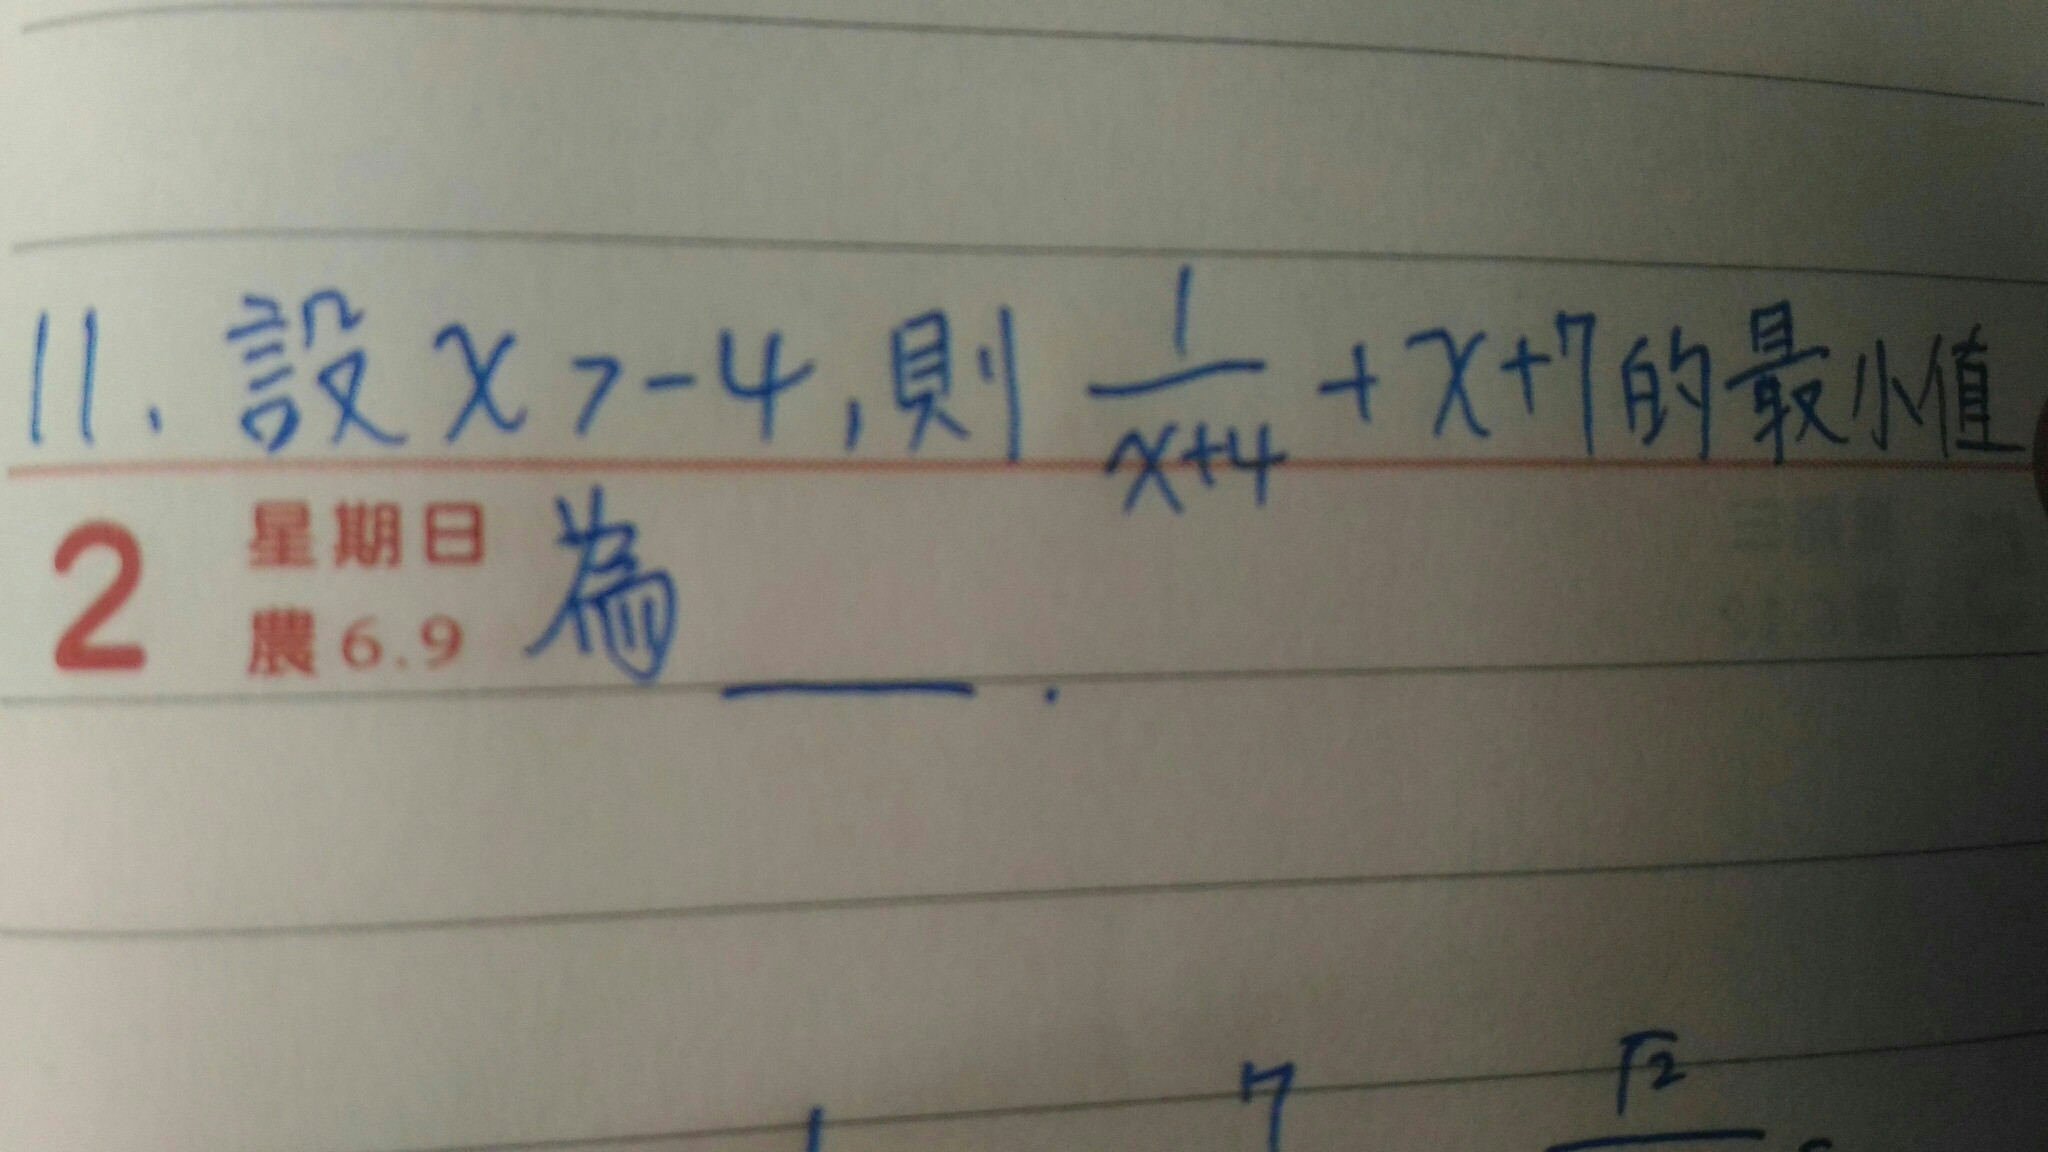 11. 設 x > -4, 則 \frac{1}{x+4} + x + 7 的最小值
2 星期日 為 ____ .
農 6.9
7 √2